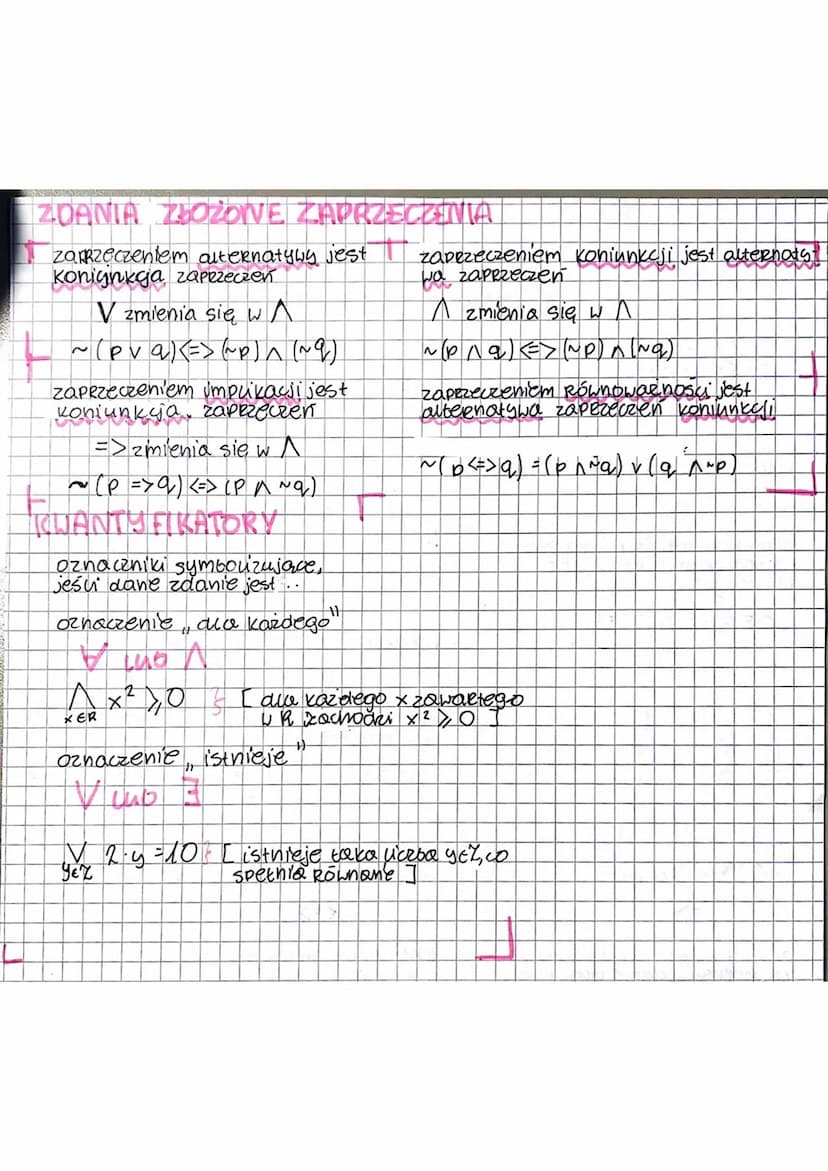 ZDANIA ZŁOŻONE ZAPRZECZENIA
zaprzeczeniem alternatywy jest
koniunkcja zaprzeczeń
V zmienia się w Λ
~(p v q) <=> (~p) ∧ (~q)
zaprzeczeniem implikacji jest
koniunkcja zaprzeczeń
=> zmienia się w Λ
~(p => q) <=> (p ∧ ~q)
zaprzeczeniem koniunkcji jest alternaty
wa zaprzeczeń
Λ zmienia się w Λ
~(p ∧ q) <=> (~p) ∧ (~q)
zaprzeczeniem równoważności jest
alternatywa zaprzeczeń koniunkcji
~(p <=> q) = (p ∧ ~q) v (q ∧ ~p)
KWANTYFIKATORY
oznaczniki symbolizujące,
jeśli dane zdanie jest ..
oznaczenie „dla każdego"
∀ lub Λ
Λ x² ⩾ 0 [dla każdego x zawartego
x∈R
w R zachodzi x² ⩾ 0]
oznaczenie „istnieje"
V lub ∃
V 2·y = 10 [istnieje taka liczba y∈Z, co
y∈Z
spełnia równanie]